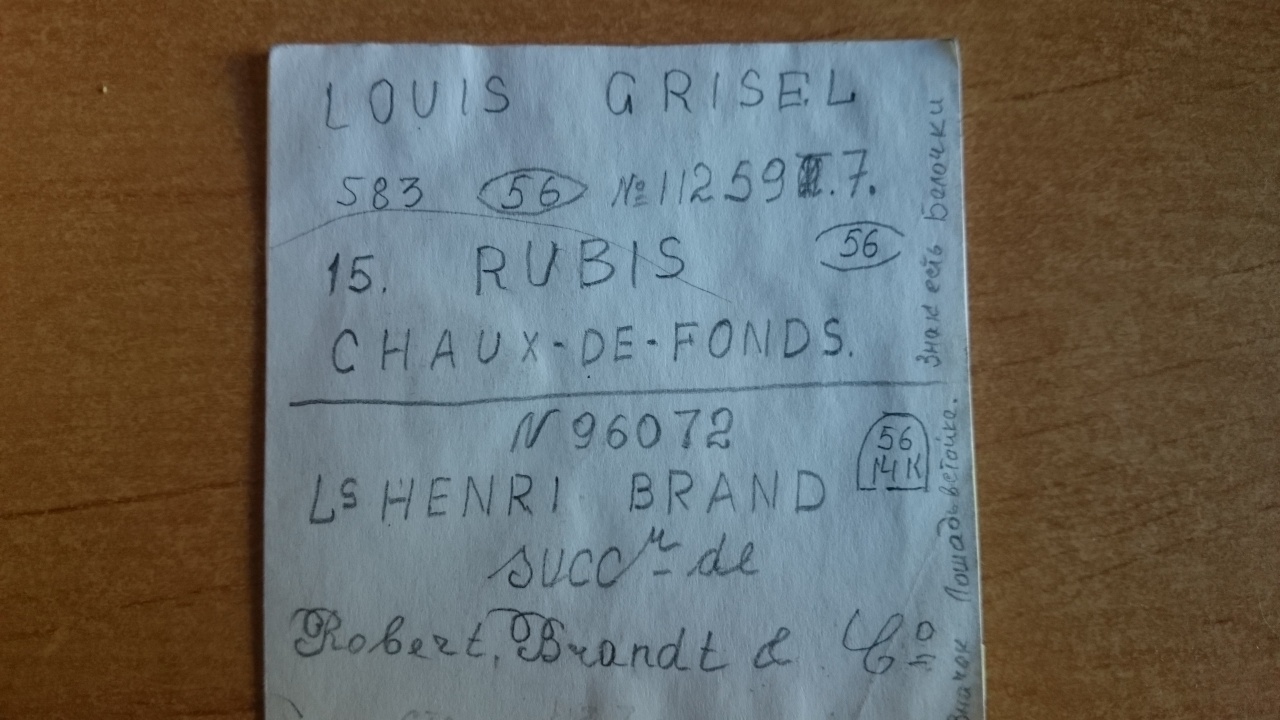 LOUIS GRISEL
583 56 № 11259 .7.
15. RUBIS 56
CHAUX-DE-FONDS.
N 96072
56
14 K
Ls HENRI BRAND
succr de
Robert, Brandt & Co
Знак есть Белочки
Значок Лошадь встойке.